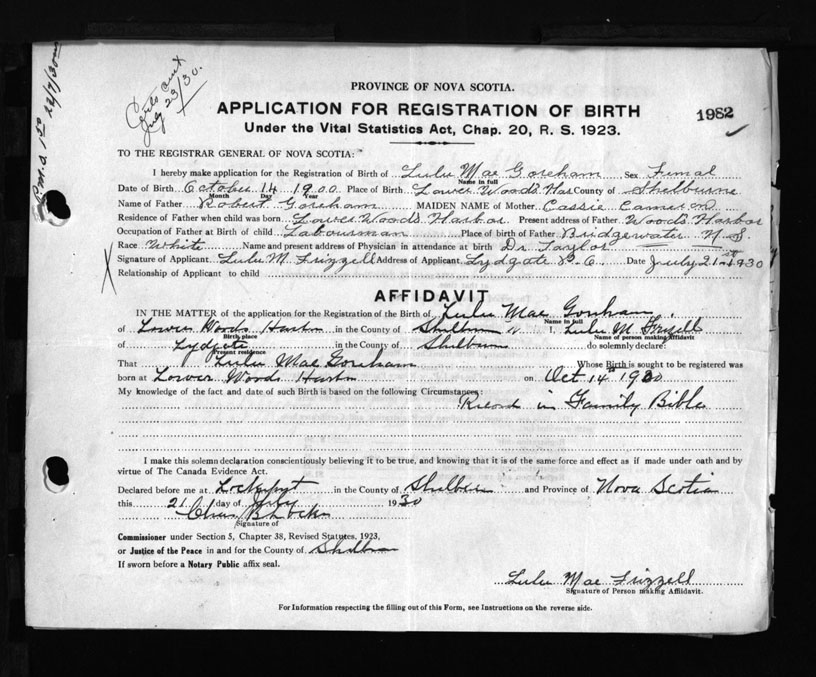 Certs sent
July 23/30.
PROVINCE OF NOVA SCOTIA.
APPLICATION FOR REGISTRATION OF BIRTH
1982
Under the Vital Statistics Act, Chap. 20, R. S. 1923.
TO THE REGISTRAR GENERAL OF NOVA SCOTIA:
I hereby make application for the Registration of Birth of Lulu Mae Goreham Sex Femal
Name in full
Date of Birth October 14 1900 Place of Birth Lower Woods Har County of Shelburne
Month Day Year
Name of Father Robert Goreham MAIDEN NAME of Mother Cassie Cameron
Residence of Father when child was born Lower Woods Harbor Present address of Father Woods Harbor
Occupation of Father at Birth of child Labourman Place of birth of Father Bridgewater N.S.
Race White Name and present address of Physician in attendance at birth Dr Taylor
Signature of Applicant Lulu M. Frizzell Address of Applicant Lydgate Date July 21st 1930
Relationship of Applicant to child
AFFIDAVIT
IN THE MATTER of the application for the Registration of the Birth of Lulu Mae Goreham
Name in full
of Lower Woods Harbor in the County of Shelburn I, Lulu M Frizzell
Birth place Name of person making Affidavit
of Lydgate in the County of Shelburn do solemnly declare:
Present residence
That Lulu Mae Goreham Whose Birth is sought to be registered was
born at Lower Woods Harbor on Oct 14th 1900
My knowledge of the fact and date of such Birth is based on the following Circumstances:
Record in Family Bible
I make this solemn declaration conscientiously believing it to be true, and knowing that it is of the same force and effect as if made under oath and by
virtue of The Canada Evidence Act.
Declared before me at Lockeport in the County of Shelburn and Province of Nova Scotia
this 21 day of July 1930
Chas B Locke
Signature of
Commissioner under Section 5, Chapter 38, Revised Statutes, 1923,
or Justice of the Peace in and for the County of Shelburn
If sworn before a Notary Public affix seal.
Lulu Mae Frizzell
Signature of Person making Affidavit.
For Information respecting the filling out of this Form, see Instructions on the reverse side.